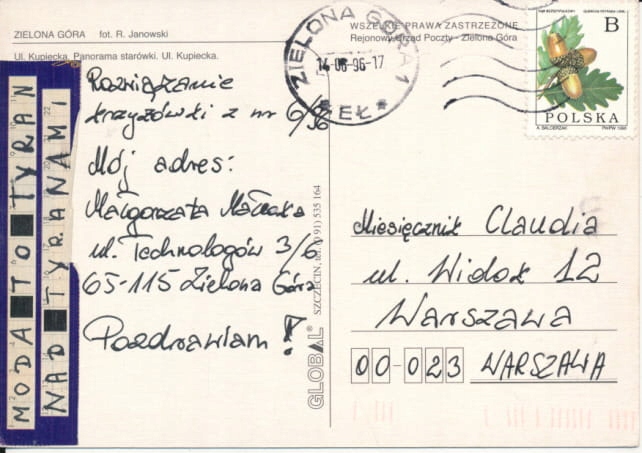 ZIELONA GÓRA fot. R. Janowski
Ul. Kupiecka. Panorama starówki. Ul. Kupiecka.
MODA TO TYRAN
NAD TYRANAMI
Rozwiązanie
krzyżówki z nr 6/96
Mój adres:
Małgorzata
ul. Technologów 3/6
65-115 Zielona Góra
Pozdrawiam!
GLOBAL®
SZCZECIN, tel. (0 91) 535 164
WSZELKIE PRAWA ZASTRZEŻONE
Rejonowy Urząd Poczty - Zielona Góra
ZIELONA GÓRA 1
14-06-96-17
EŁ
B
POLSKA
A. BALCERZAK PWPW 1995
Miesięcznik Claudia
ul. Widok 12
Warszawa
00-023 WARSZAWA